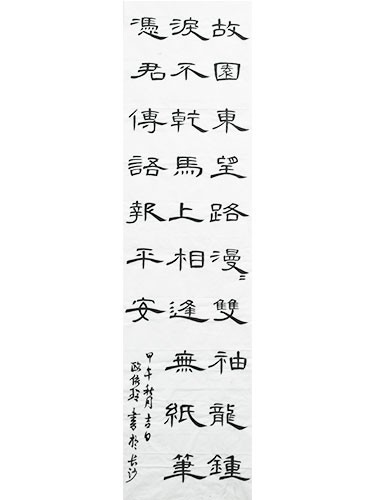 故園東望路漫〻雙袖龍鍾
淚不乾馬上相逢無紙筆
憑君傳語報平安
甲午秋月吉日
書於長沙